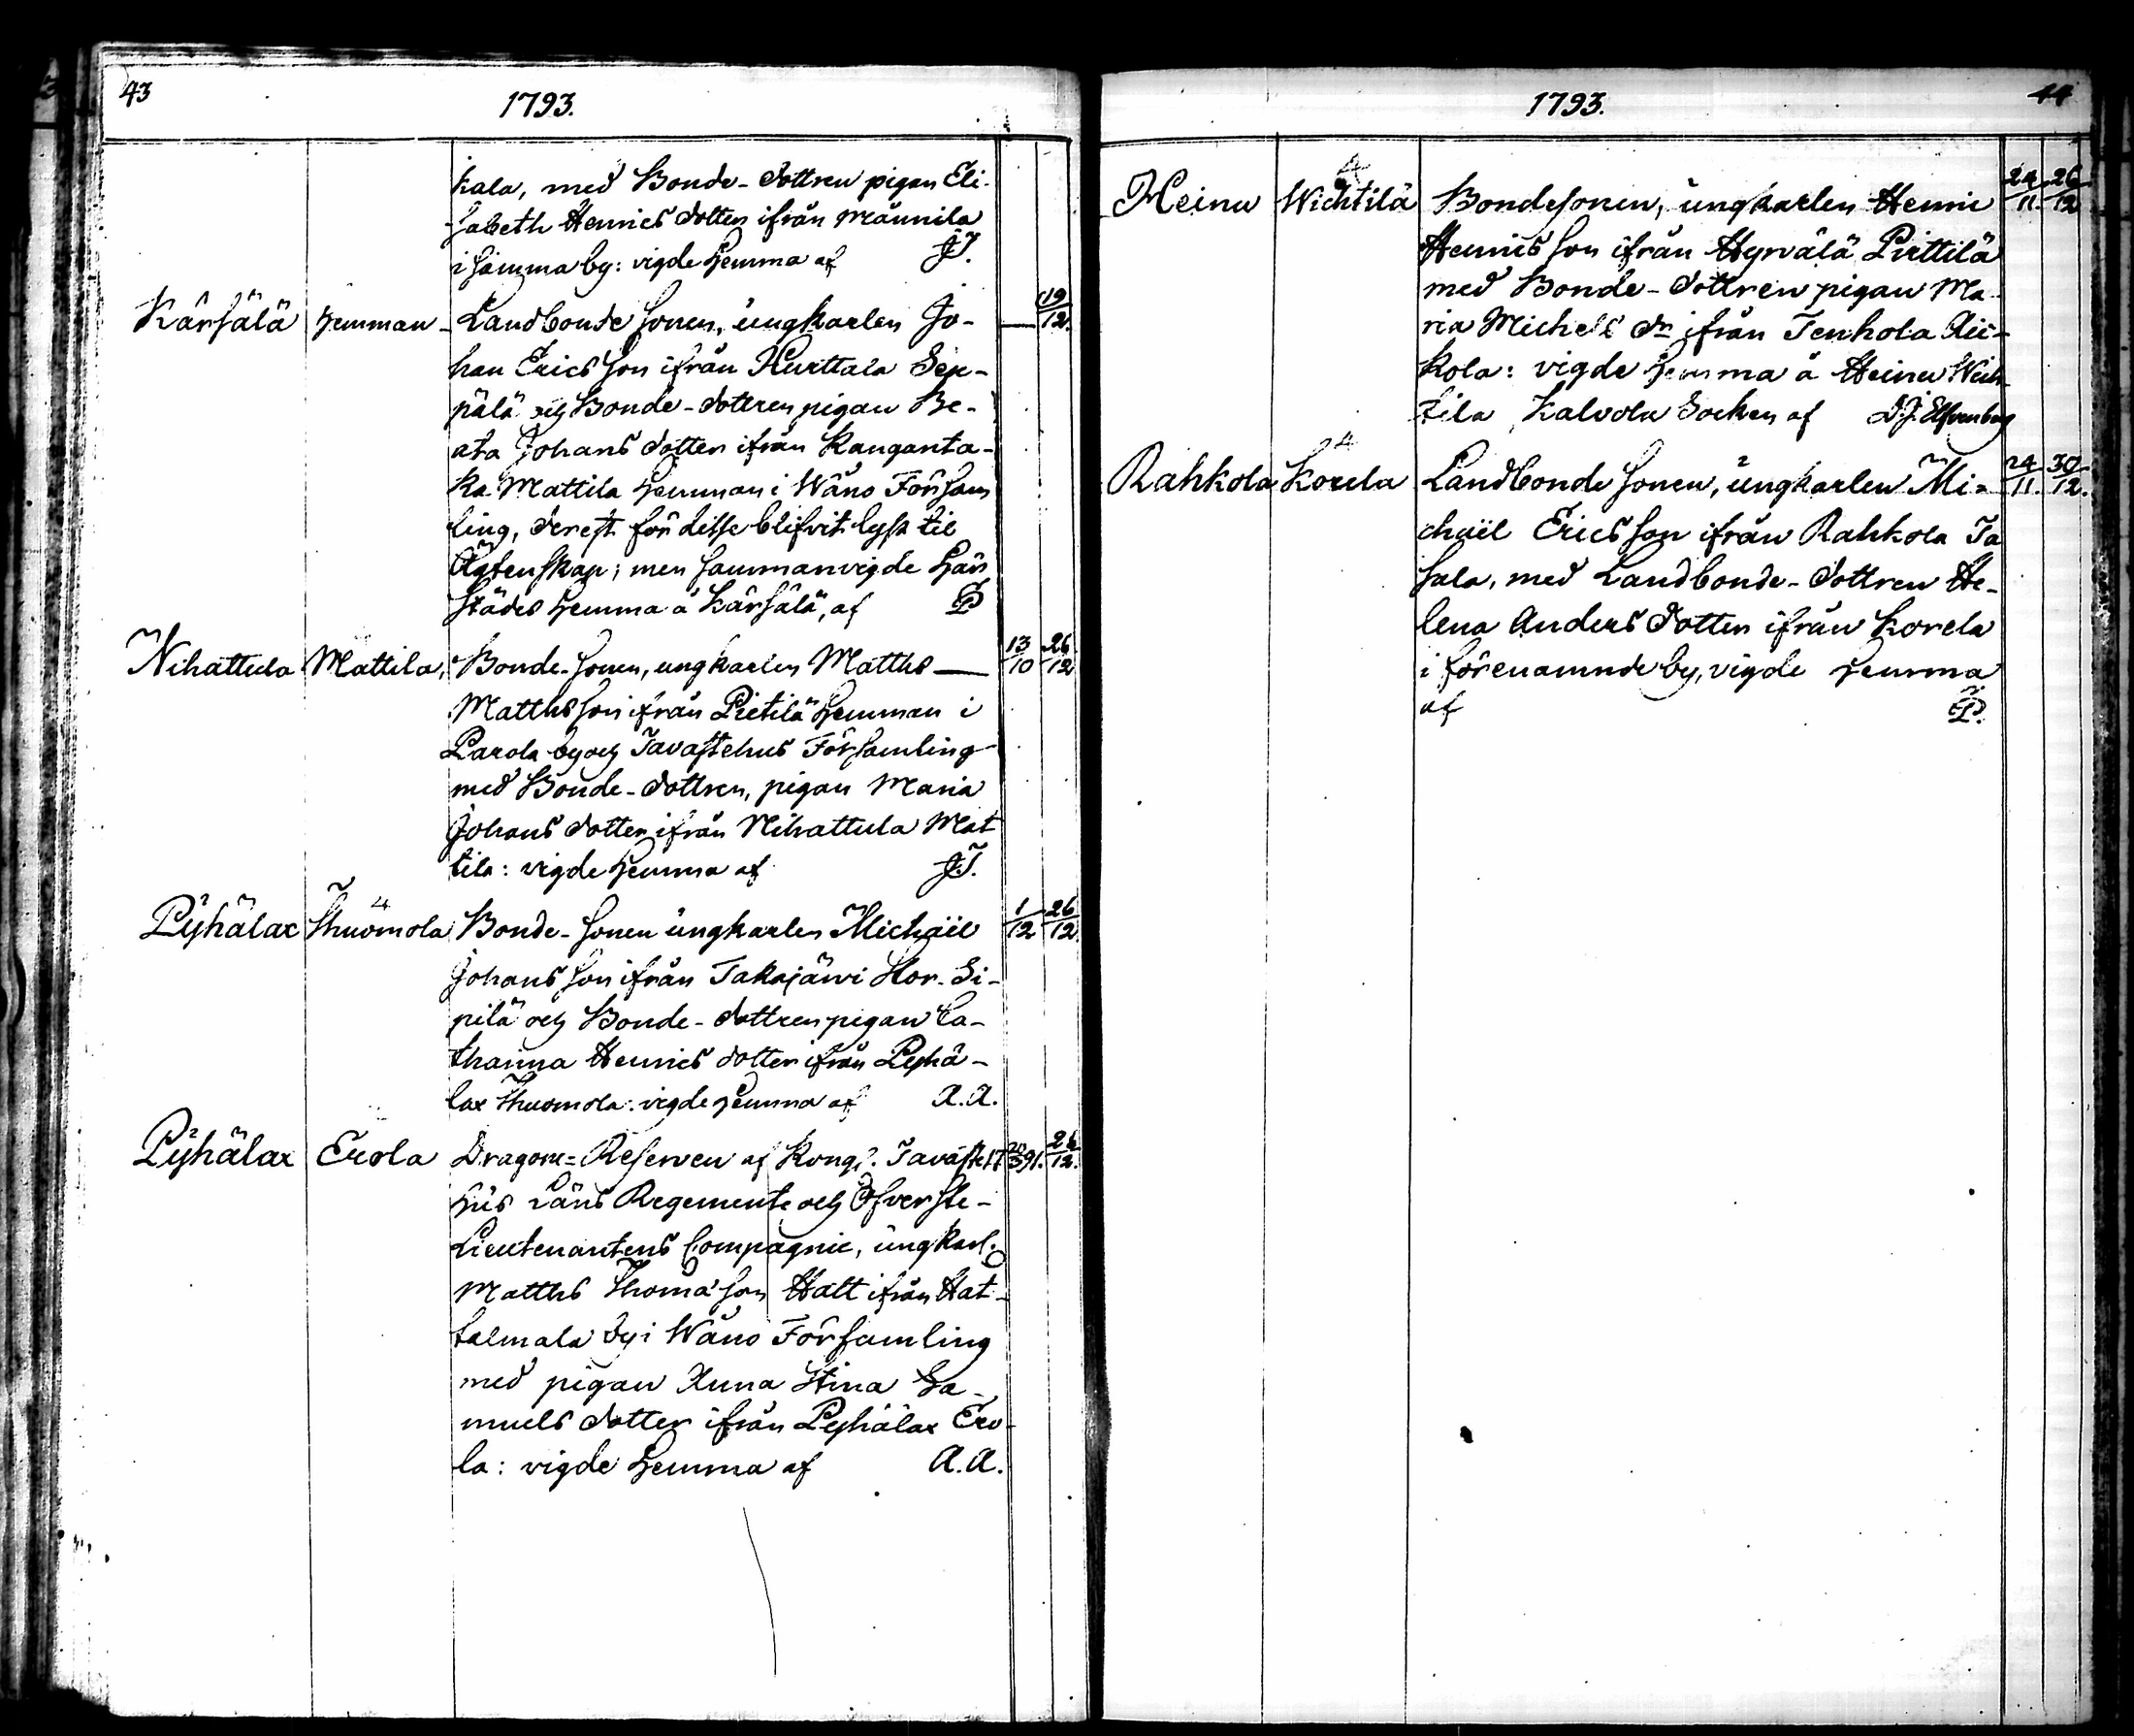 43
1793.
kala, med Bonde-dottren pigan Eli-
sabeth Henrics dotter ifrån Männilä
i samma by: vigde hemma af J.T.
Kärsälä hemman Landbonde sonen, ungkarlen Jo- — 19/12.
han Ericsson ifrån Kurttala Sep-
pälä och Bonde-dottren pigan Be-
ata Johans dotter ifrån Kanganta-
ka Mattila hemman i Wåno Försam
ling, derest för detse blifvit lyst til
Ägtenskap; men sammanvigde här
städes hemma å Kärsälä, af P
Nihattula Mattila, Bonde-sonen, ungkarlen Matths — 13/10 26/12
Matthsson ifrån Pietilä hemman i
Parola by och Tavastehus Församling
med Bonde-dottren, pigan Maria
Johans dotter ifrån Nihattula Mat
tila: vigde hemma af J.T.
Pyhälax Thuomola Bonde-sonen ungkarlen Michaël 1/12 26/12.
Johansson ifrån Takajärvi Hor. Si-
pilä och Bonde-dottren pigan Ca-
tharina Henrics dotter ifrån Pyhä-
lax Thuomola: vigde hemma af A.A.
Pyhälax Erola Dragone=Reserven af Kongl. Tavaste 91. 26/12.
hus Läns Regemente och Öfverste-
Lieutenantens Compagnie, ungkarl.
Matths Thomasson Hatt ifrån Hat-
talmala by i Wåno Församling
med pigan Anna Stina Sa-
muels dotter ifrån Pyhälax Ero-
la: vigde hemma af A.A.
1793.
44
Heinu Wichtilä Bondesonen, ungkarlen Henric 24/11. 26/12
Henricsson ifrån Hyrvälä Pirttilä
med Bonde-dottren pigan Ma-
ria Michels dr ifrån Tenhola Rii-
kola: vigde hemma å Heinu Wich-
tila Kalvola Socken af D.J. Elfvenberg
Rahkola Korela Landbonde sonen, ungkarlen Mi= 24/11. 30/12.
chaël Ericsson ifrån Rahkola Ta
sala, med Landbonde-dottren He-
lena Anders dotter ifrån Korela
i förenamnde by, vigde hemma
af P.